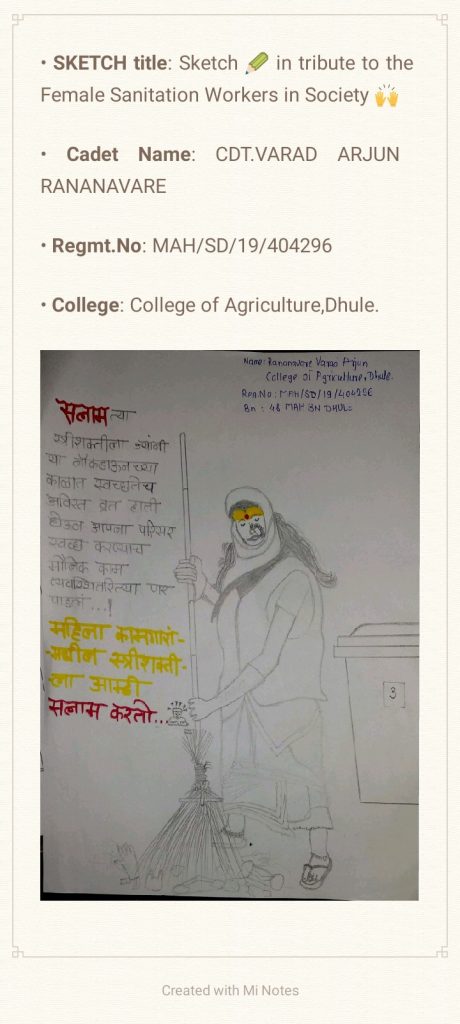 • SKETCH title: Sketch ✏️ in tribute to the
Female Sanitation Workers in Society 🙌
• Cadet Name: CDT.VARAD ARJUN
RANANAVARE
• Regmt.No: MAH/SD/19/404296
• College: College of Agriculture,Dhule.
Name: Rananavare Varad Arjun
College of Agriculture, Dhule.
Reg.No: MAH/SD/19/404296
Bn : 48 MAH BN DHULE
सलाम त्या
स्त्रीशक्तीला ज्यांनी
या लॉकडाऊनच्या
काळात स्वच्छतेच
अविरत व्रत हाती
घेऊन आपला परिसर
स्वच्छ करण्याच
मौलिक काम
व्यवस्थितरित्या पार
पाडलं...!
महिला कामगारां-
-मधील स्त्रीशक्ती-
-ला आम्ही
सलाम करतो...
3
Created with Mi Notes